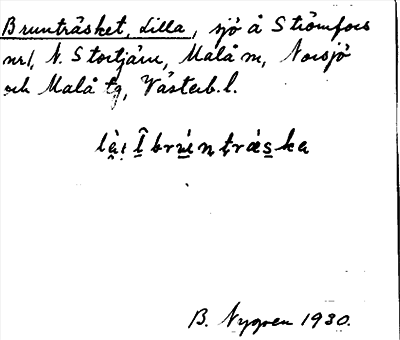 Brunnträsket, Lilla, sjö å Strömfors
nr 1, N. Stortjärn, Malå sn, Norsjö
och Malå tg, Västerb. l.
B. Nygren 1930.